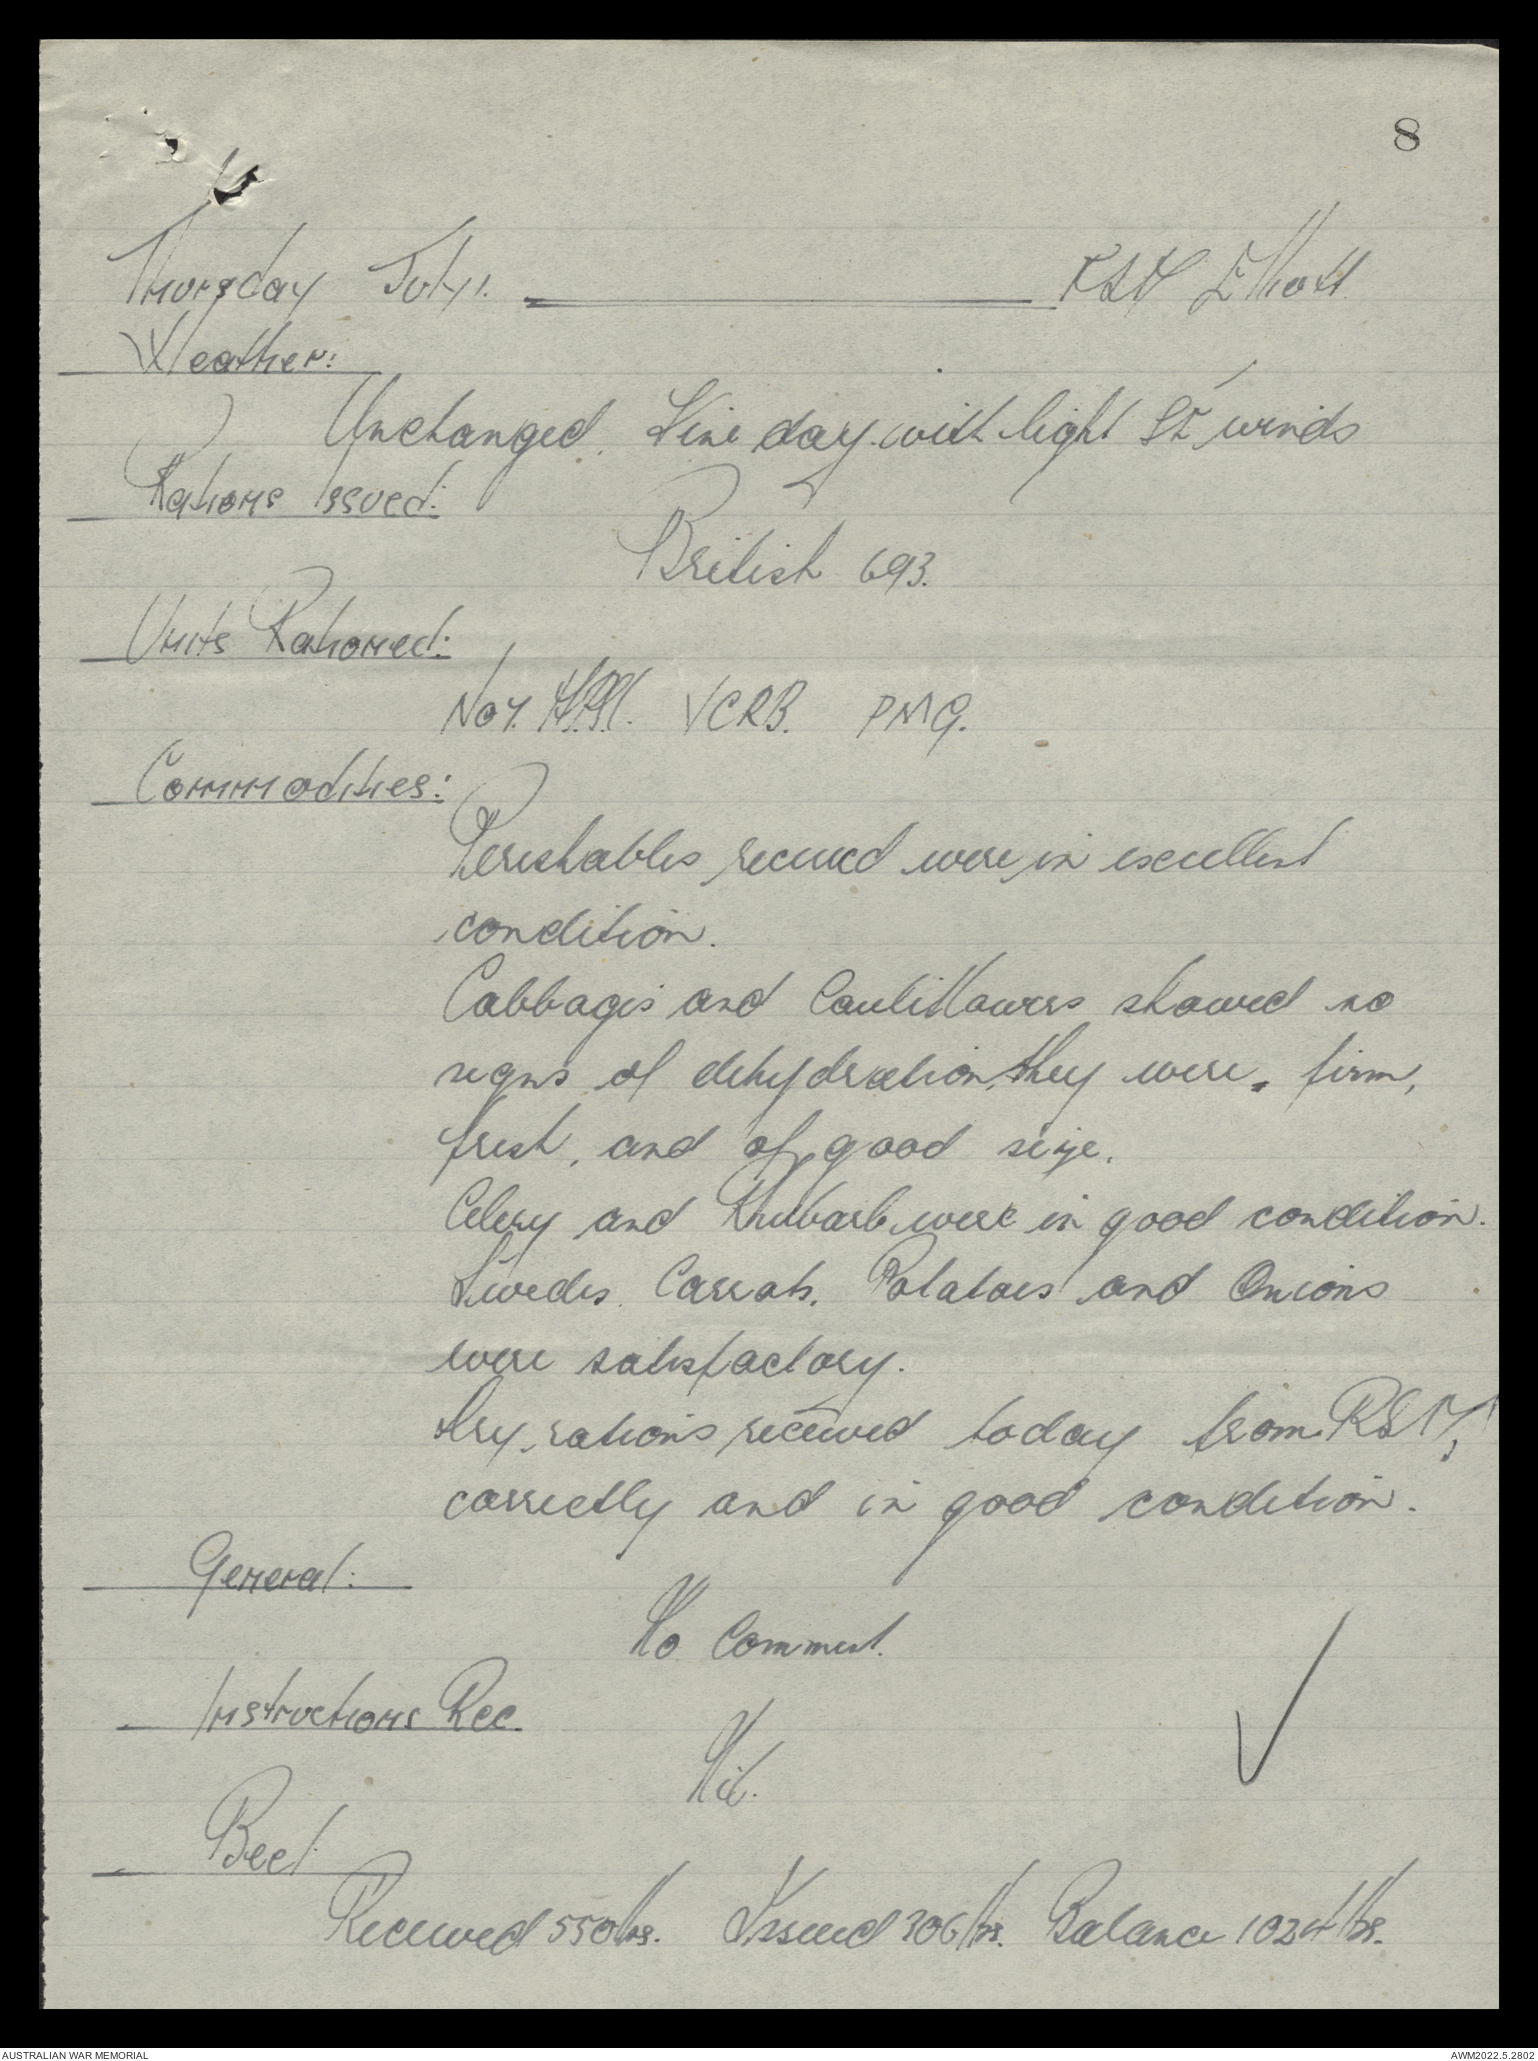 8
Thursday July 1. FSD Elliott
Weather:
Unchanged. Fine day with light SE winds
Rations Issued:
British 693.
Units Rationed:
VCRB. PMG.
Commodities:
Perishables received were in excellent
condition.
Cabbages and Cauliflowers showed no
signs of dehydration, they were, firm,
fresh, and of good size.
Celery and Rhubarb were in good condition.
Swedes, Carrots, Potatoes and Onions
were satisfactory.
Dry rations received today from
correctly and in good condition.
General:
No Comment.
Instructions Rec.
Nil.
Beef:
Received 550 lbs. Issued 306 lbs. Balance 1024 lbs.
AUSTRALIAN WAR MEMORIAL
AWM2022.5.2802